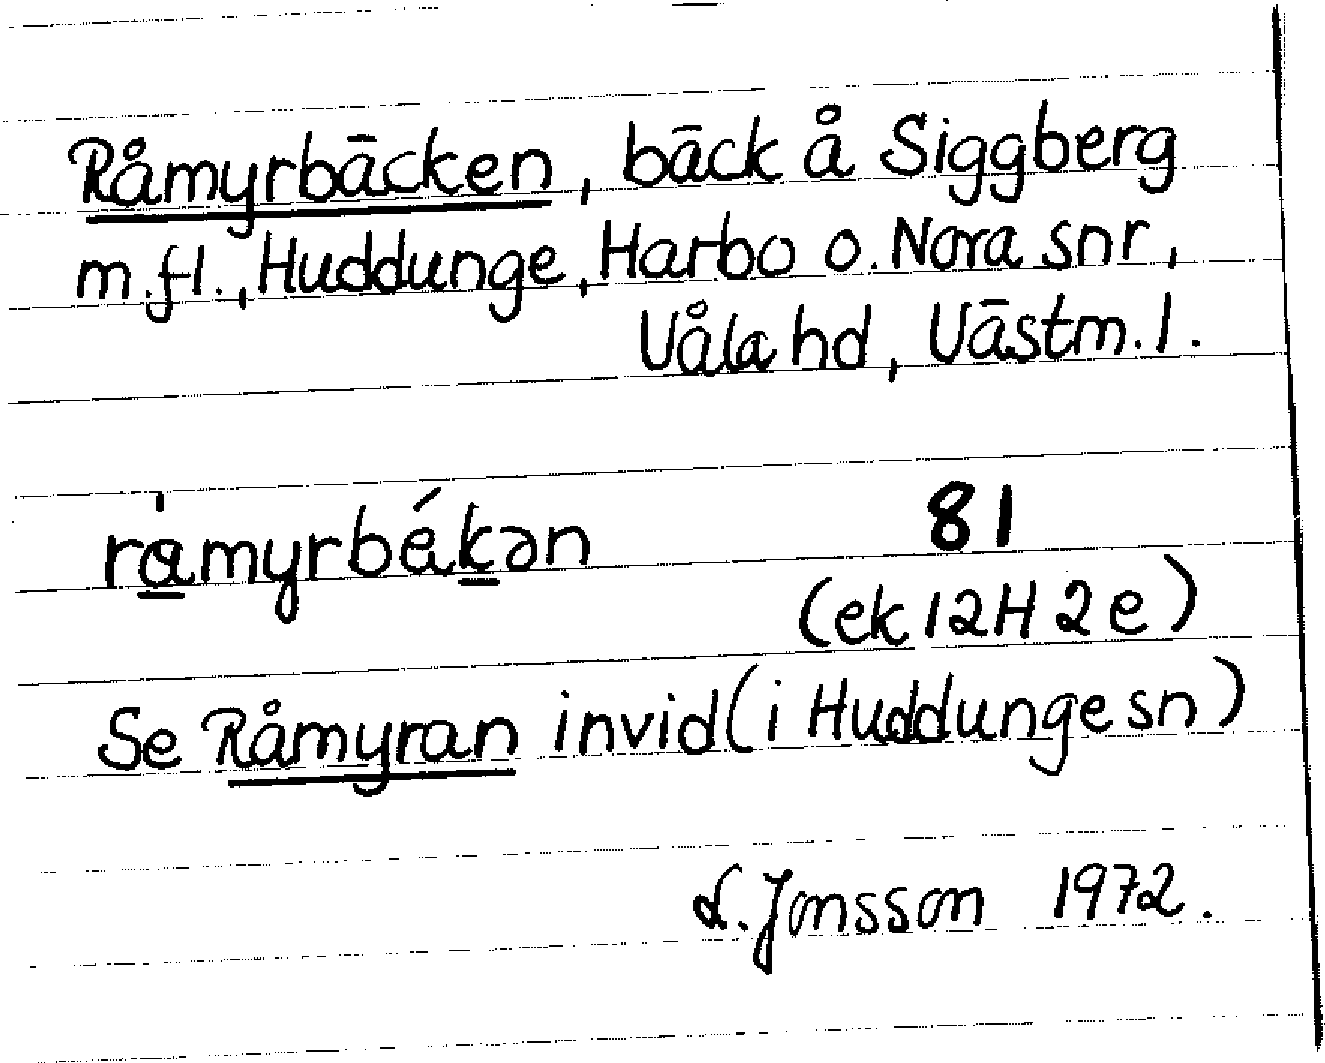 Råmyrbäcken, bäck å Siggberg
m.fl., Huddunge, Harbo o. Nora snr,
Våla hd, Västm. l.
rå̱myrbéḵən 81
(ek 12H 2e)
Se Råmyran invid (i Huddunge sn)
L. Jonsson 1972.